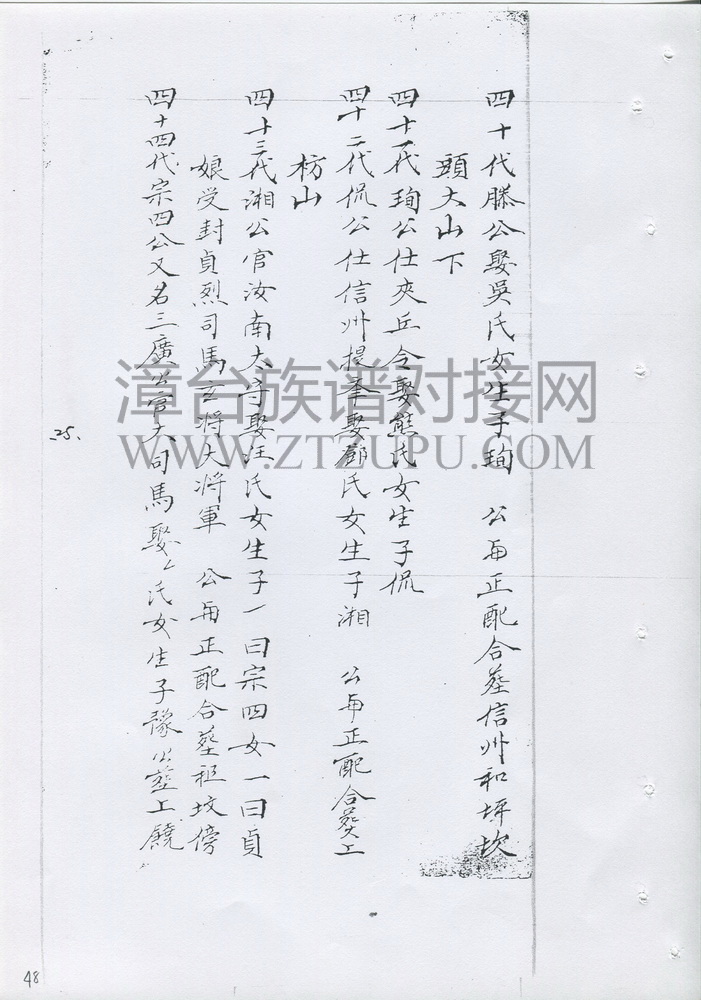 四十代滕公娶吳氏女生子珣 公毎正配合葬信州和坪坎
頭大山下
四十一代珣公仕夾丘令娶熊氏女生子侃
四十二代侃公仕信州提举娶鄧氏女生子湘 公毎正配合葬上
枋山
四十三代湘公官汝南大守娶汪氏女生子一曰宗四女一曰貞
娘受封貞烈司馬玄将大将軍 公毎正配合葬祖坟傍
四十四代宗四公又名三廣公官大司馬娶氏女生子豫公葬上饒
漳台族谱对接网
WWW.ZTZUPU.COM
25.
48